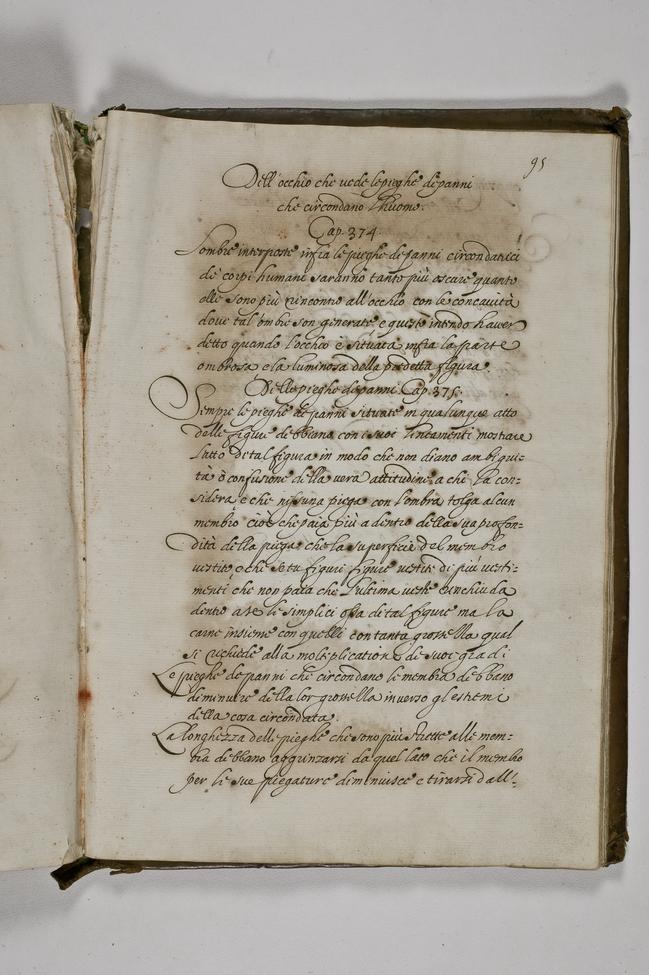 95
Dell'occhio che uede le pieghe de panni
che circondano l'huomo.
Cap. 374.
L'ombre interposte infra le pieghe de panni circondatrici
de corpi humani saranno tanto più oscure quanto
elle sono più rincontro all'occhio con le concauità
doue tal ombre son generate e questo intendo hauer
detto quando l'occhio è situato infra la parte
ombrosa e la luminosa della predetta figura.
Delle pieghe de panni. Cap. 375.
Sempre le pieghe de panni situate in qualunque atto
delle figure debbano con i suoi lineamenti mostrare
l'atto di tal figura in modo che non diano ambigui=
tà ò confusione della vera attitudine a chi la con=
sidera e che nissuna piega con l'ombra tolga alcun
membro cioè che paia più a dentro della sua profon=
dità della piega che la superficie del membro
vestito e che se tu figuri figure vestite di più vesti=
menti che non paia che l'ultima veste rinchiuda
dentro a se le simplici ossa di tal figure ma la
carne insieme con quelli con tanta grossezza qual
si richiede alla moltiplicatione de suoi gradi
Le pieghe de panni che circondano le membra debbano
diminuire della lor grossezza inuerso gl'estremi
della cosa circondata.
La longhezza delle pieghe che sono più strette alle mem=
bra debbano aggrinzarsi da quel lato che il membro
per le sue piegature diminuisce e tirarsi dall'=